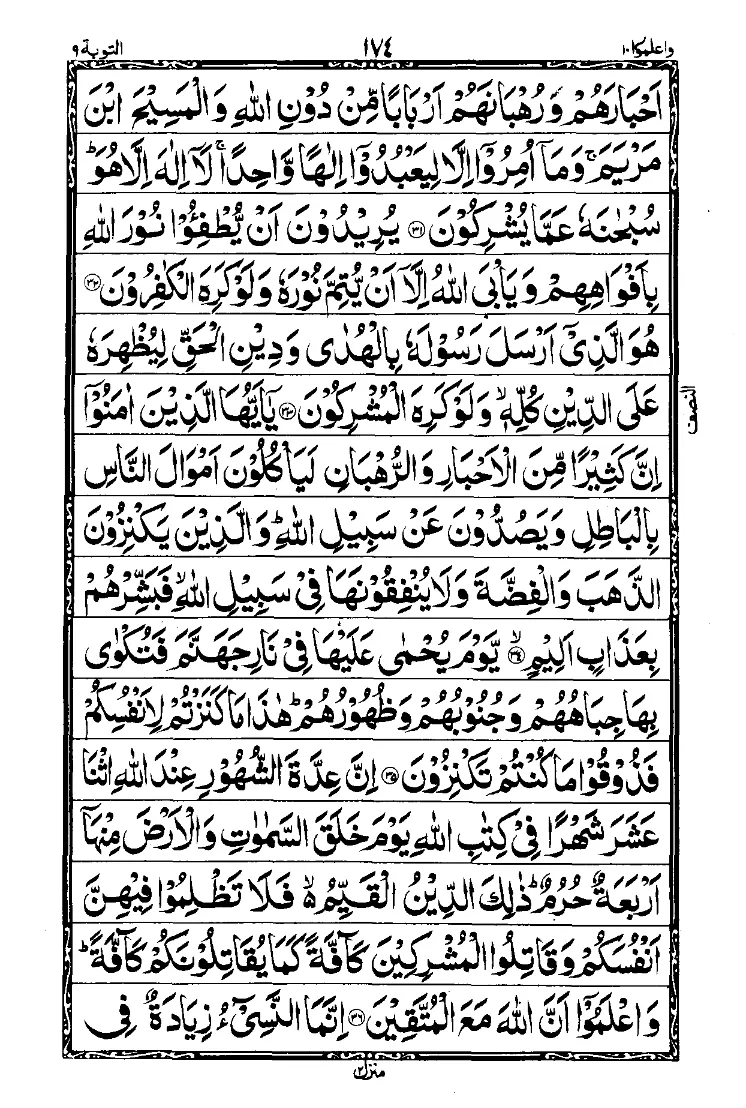 واعلموا ١٠ ١٧٤ التوبة ٩
اَحْبَارَهُمْ وَرُهْبَانَهُمْ اَرْبَابًا مِّنْ دُوْنِ اللّٰهِ وَالْمَسِيْحَ ابْنَ
مَرْيَمَ ۚ وَمَاۤ اُمِرُوْۤا اِلَّا لِيَعْبُدُوْۤا اِلٰهًا وَّاحِدًا ۚ لَاۤ اِلٰهَ اِلَّا هُوَ ؕ
سُبْحٰنَهٗ عَمَّا يُشْرِكُوْنَ ﴿۳۱﴾ يُرِيْدُوْنَ اَنْ يُّطْفِـُٔوْا نُوْرَ اللّٰهِ
بِاَفْوَاهِهِمْ وَيَاْبَى اللّٰهُ اِلَّاۤ اَنْ يُّتِمَّ نُوْرَهٗ وَلَوْ كَرِهَ الْكٰفِرُوْنَ ﴿۳۲﴾
هُوَ الَّذِيْۤ اَرْسَلَ رَسُوْلَهٗ بِالْهُدٰى وَدِيْنِ الْحَقِّ لِيُظْهِرَهٗ
عَلَى الدِّيْنِ كُلِّهٖ ۙ وَلَوْ كَرِهَ الْمُشْرِكُوْنَ ﴿۳۳﴾ يٰۤاَيُّهَا الَّذِيْنَ اٰمَنُوْۤا
النصف
اِنَّ كَثِيْرًا مِّنَ الْاَحْبَارِ وَالرُّهْبَانِ لَيَاْكُلُوْنَ اَمْوَالَ النَّاسِ
بِالْبَاطِلِ وَيَصُدُّوْنَ عَنْ سَبِيْلِ اللّٰهِ ؕ وَالَّذِيْنَ يَكْنِزُوْنَ
الذَّهَبَ وَالْفِضَّةَ وَلَا يُنْفِقُوْنَهَا فِيْ سَبِيْلِ اللّٰهِ ۙ فَبَشِّرْهُمْ
بِعَذَابٍ اَلِيْمٍ ﴿۳۴﴾ ۙ يَّوْمَ يُحْمٰى عَلَيْهَا فِيْ نَارِ جَهَنَّمَ فَتُكْوٰى
بِهَا جِبَاهُهُمْ وَجُنُوْبُهُمْ وَظُهُوْرُهُمْ ؕ هٰذَا مَا كَنَزْتُمْ لِاَنْفُسِكُمْ
فَذُوْقُوْا مَا كُنْتُمْ تَكْنِزُوْنَ ﴿۳۵﴾ اِنَّ عِدَّةَ الشُّهُوْرِ عِنْدَ اللّٰهِ اثْنَا
عَشَرَ شَهْرًا فِيْ كِتٰبِ اللّٰهِ يَوْمَ خَلَقَ السَّمٰوٰتِ وَالْاَرْضَ مِنْهَاۤ
اَرْبَعَةٌ حُرُمٌ ؕ ذٰلِكَ الدِّيْنُ الْقَيِّمُ ۙ فَلَا تَظْلِمُوْا فِيْهِنَّ
اَنْفُسَكُمْ وَقَاتِلُوا الْمُشْرِكِيْنَ كَآفَّةً كَمَا يُقَاتِلُوْنَكُمْ كَآفَّةً ؕ
وَاعْلَمُوْۤا اَنَّ اللّٰهَ مَعَ الْمُتَّقِيْنَ ﴿۳۶﴾ اِنَّمَا النَّسِيْٓءُ زِيَادَةٌ فِي
منزل ٢